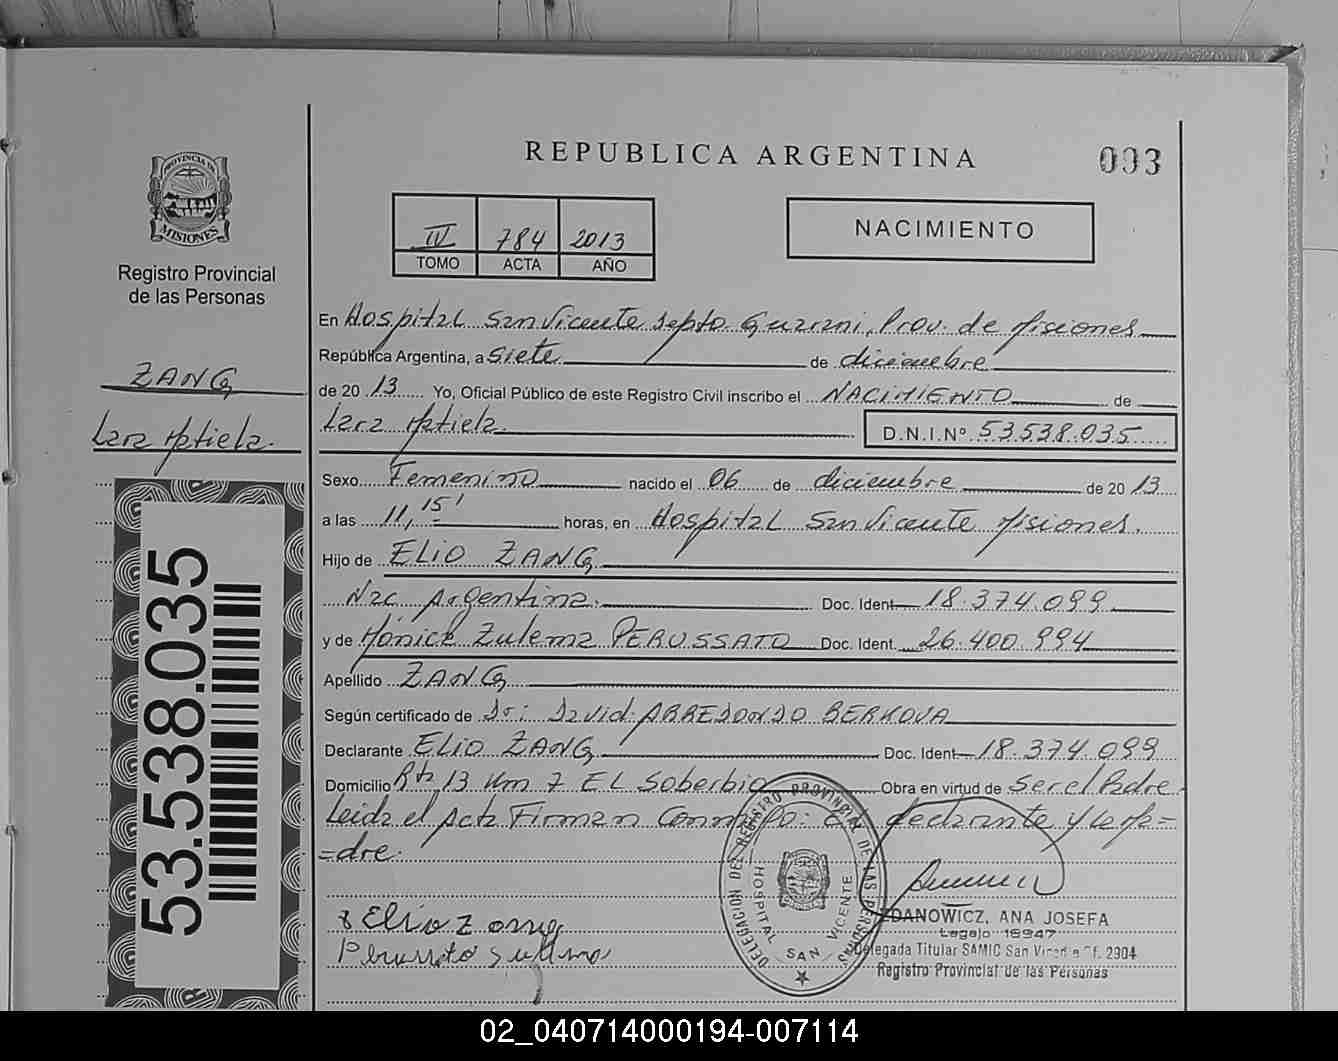 REPUBLICA ARGENTINA
093
PROVINCIA DE
MISIONES
Registro Provincial
de las Personas
IV 784 2013
TOMO ACTA AÑO
NACIMIENTO
ZANG
Lara Mariela.
53.538.035
En Hospital San Vicente Depto Guarani, Prov. de Misiones
República Argentina, a Siete de diciembre
de 20 13 Yo, Oficial Público de este Registro Civil inscribo el NACIMIENTO de
Lara Mariela. D.N.I.Nº 53.538.035
Sexo Femenino nacido el 06 de diciembre de 20 13
a las 11, 15' horas, en Hospital San Vicente Misiones.
Hijo de ELIO ZANG
Nac Argentina. Doc. Ident 18.374.099
y de Mónica Zulema PERUSSATO Doc. Ident. 26.400.994
Apellido ZANG
Según certificado de Dr: David ARREDONDO BERKOVA
Declarante ELIO ZANG Doc. Ident 18.374.099
Domicilio Rta 13 Km 7 EL Soberbio Obra en virtud de Ser el Padre
Leida el Acta Firman Conmigo: El declarante y la Ma=
=dre.
DELEGACION DEL REGISTRO PROVINCIAL DE LAS PERSONAS
HOSPITAL SAN VICENTE
Elio Zang
Perussato Sulema
ZDANOWICZ, ANA JOSEFA
Legajo 18947
Delegada Titular SAMIC San Vicente Of. 2904
Registro Provincial de las Personas
02_040714000194-007114